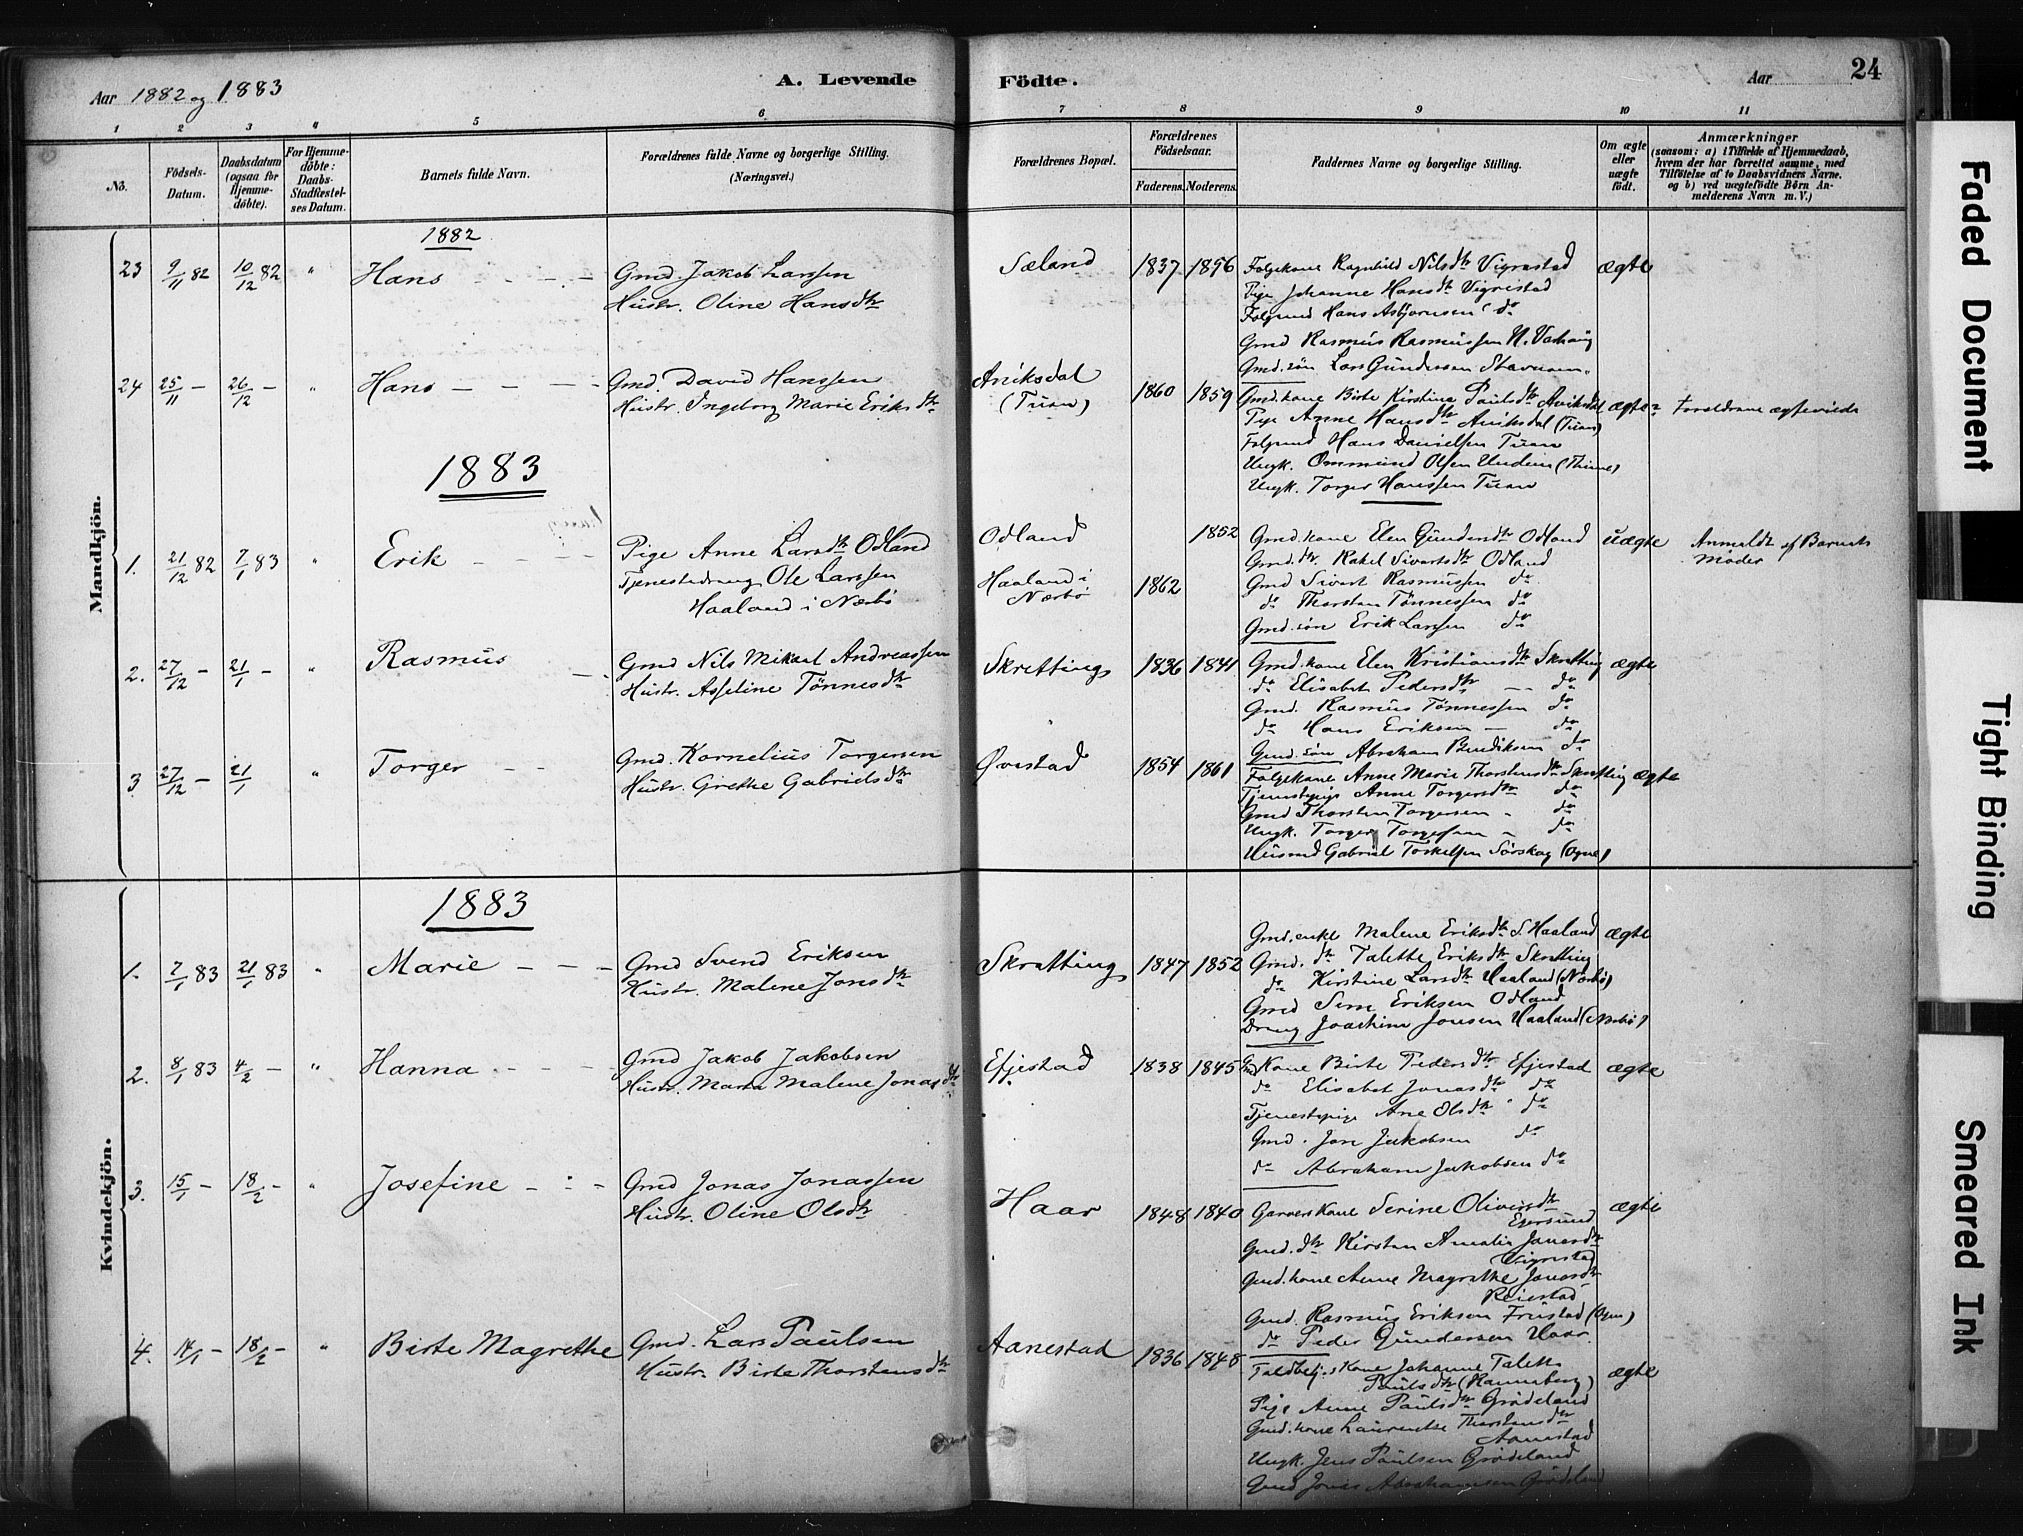 Aar 1882 og 1883
A. Levende Födte.
Aar
24
1 2 3 4 5 6 7 8 9 10 11
No.
Födsels-Datum.
Daabsdatum (ogsaa for Hjemmedöbte).
For Hjemmedöbte: Daabs-Stadfæstelses Datum.
Barnets fulde Navn.
Forældrenes fulde Navne og borgerlige Stilling. (Næringsvei.)
Forældrenes Bopæl.
Forældrenes Födselsaar.
Faderens. Moderens.
Faddernes Navne og borgerlige Stilling.
Om ægte eller uægte födt.
Anmærkninger
(saasom: a) i Tilfælde af Hjemmedaab, hvem der har forrettet samme, med Tilföielse af to Daabsvidners Navne. og b) ved uægtefödte Börn Anmelderens Navn m. V.)
Mandkjön.
1882
23 9/11 82 10/12 82 " Hans
Gmd. Jakob Larssen
Hustr. Oline Hansdtr
Sæland 1837 1856
Folgekone Ragnhild Nilsdtr Vigrestad
Pige Johanne Hansdtr Vigrestad
Folgemd Hans Asbjornsen do
Gmd Rasmus Rasmussen N. Varhaug
Gmd. sön Lars Gundersen
ægte
24 25/11 - 26/12 - " Hans
Gmd. David Hanssen
Hustr. Ingeborg Marie Eriksdtr
Aniksdal
(Tuen)
1860 1859
Gmd. kone Birte Kirstine Paulsdtr Aniksdal
Pige Anne Hansdtr Aniksdal (Tuen)
Folgemd Hans Danielsen Tuen
Ungk. Ommund Olsen Undem (Thime)
Ungk. Torger Hanssen Tuen
ægte
Foreldrene ægteviede
1883
1. 21/12 82 7/1 83 " Erik
Pige Anne Larsdtr Odland
Tjenestedreng Ole Larssen
Haaland i Nærbö
Odland 1852
Haaland i
Nærbö 1862
Gmd. kone Elen Gundersdtr Odland
Gmd. dtr. Rakel Sivertsdtr Odland
Gmd Sivert Rasmussen do
do Thorsten Tönnessen do
Gmd. sön Erik Larssen do
uægte
Anmeldt af Barnets
Moder
2. 27/12 - 21/1 - " Rasmus
Gmd Nils Mikael Andreassen
Hustr. Asseline Tönnesdtr
Skretting 1836 1841
Gmd. kone Elen Kristiansdtr Skretting
do Elisabet Pedersdtr - do
Gmd. Rasmus Tönnessen do
do Hans Eriksen - do
Gmd. sön Abraham Bendiksen do
ægte
3 27/12 - 21/1 " Torger
Gmd Kornelius Torgersen
Hustr. Grethe Gabrielsdtr
Øvestad 1854 1861
Folgekone Anne Marie Thorstensdtr Skretting
Tjenestepige Anne Torgersdtr do
Gmd Thorsten Torgersen - do
Ungk. Torger Torgersen - do
Husmd Gabriel Torkelsen Sörskog (Ogne)
ægte
Kvindekjön.
1883
1. 7/1 83 21/1 83 " Marie
Gmd Svend Eriksen
Hustr. Malene Jonsdtr
Skretting 1847 1852
Gmd. enke Malene Eriksdtr S. Haaland
Gmd. dtr Talette Eriksdtr Skretting
do Kirstine Larsdtr Haaland (Nærbö)
Gmd Sem Eriksen Odland
Dreng Joachim Jonsen Haaland (Nærbö)
ægte
2. 8/1 83 4/2 - " Hanna
Gmd Jakob Jakobsen
Hustr. Marta Malene Jonasdtr
Efjestad 1838 1845
Gmd Kone Birte Pedersdtr Efjestad
do Elisabet Jonasdtr do
Tjenestepige Ane Olsdtr do
Gmd. Jon Jakobsen do
do Abraham Jakobsen do
ægte
3. 15/1 - 18/2 - " Josefine
Gmd Jonas Jonassen
Hustr. Oline Olsdtr
Haar 1848 1840
Garverkone Serine Oliversdtr
Egersund
Gmd. dtr Kirsten Amalia Jonasdtr
Vigrestad
Gmd. kone Anne Magrethe Jonasdtr
Reiestad
Gmd. Rasmus Eriksen Fuistad (Ogne)
do Peder Gundersen Haar
ægte
4. 14/1 - 18/2 - " Birte Magrethe
Gmd. Lars Paulsen
Hustr. Birte Thorstensdtr
Aanestad 1836 1848
Johanne Talette
Paulsdtr (Hanneberg)
Pige Anne Paulsdtr Grödeland
Gmd. kone Laurentse Thorstensdtr
Aanestad
Ungk. Jens Paulsen Grödeland
Gmd Jonas Abrahamsen Grödeland
ægte
Faded Document
Tight Binding
Smeared Ink